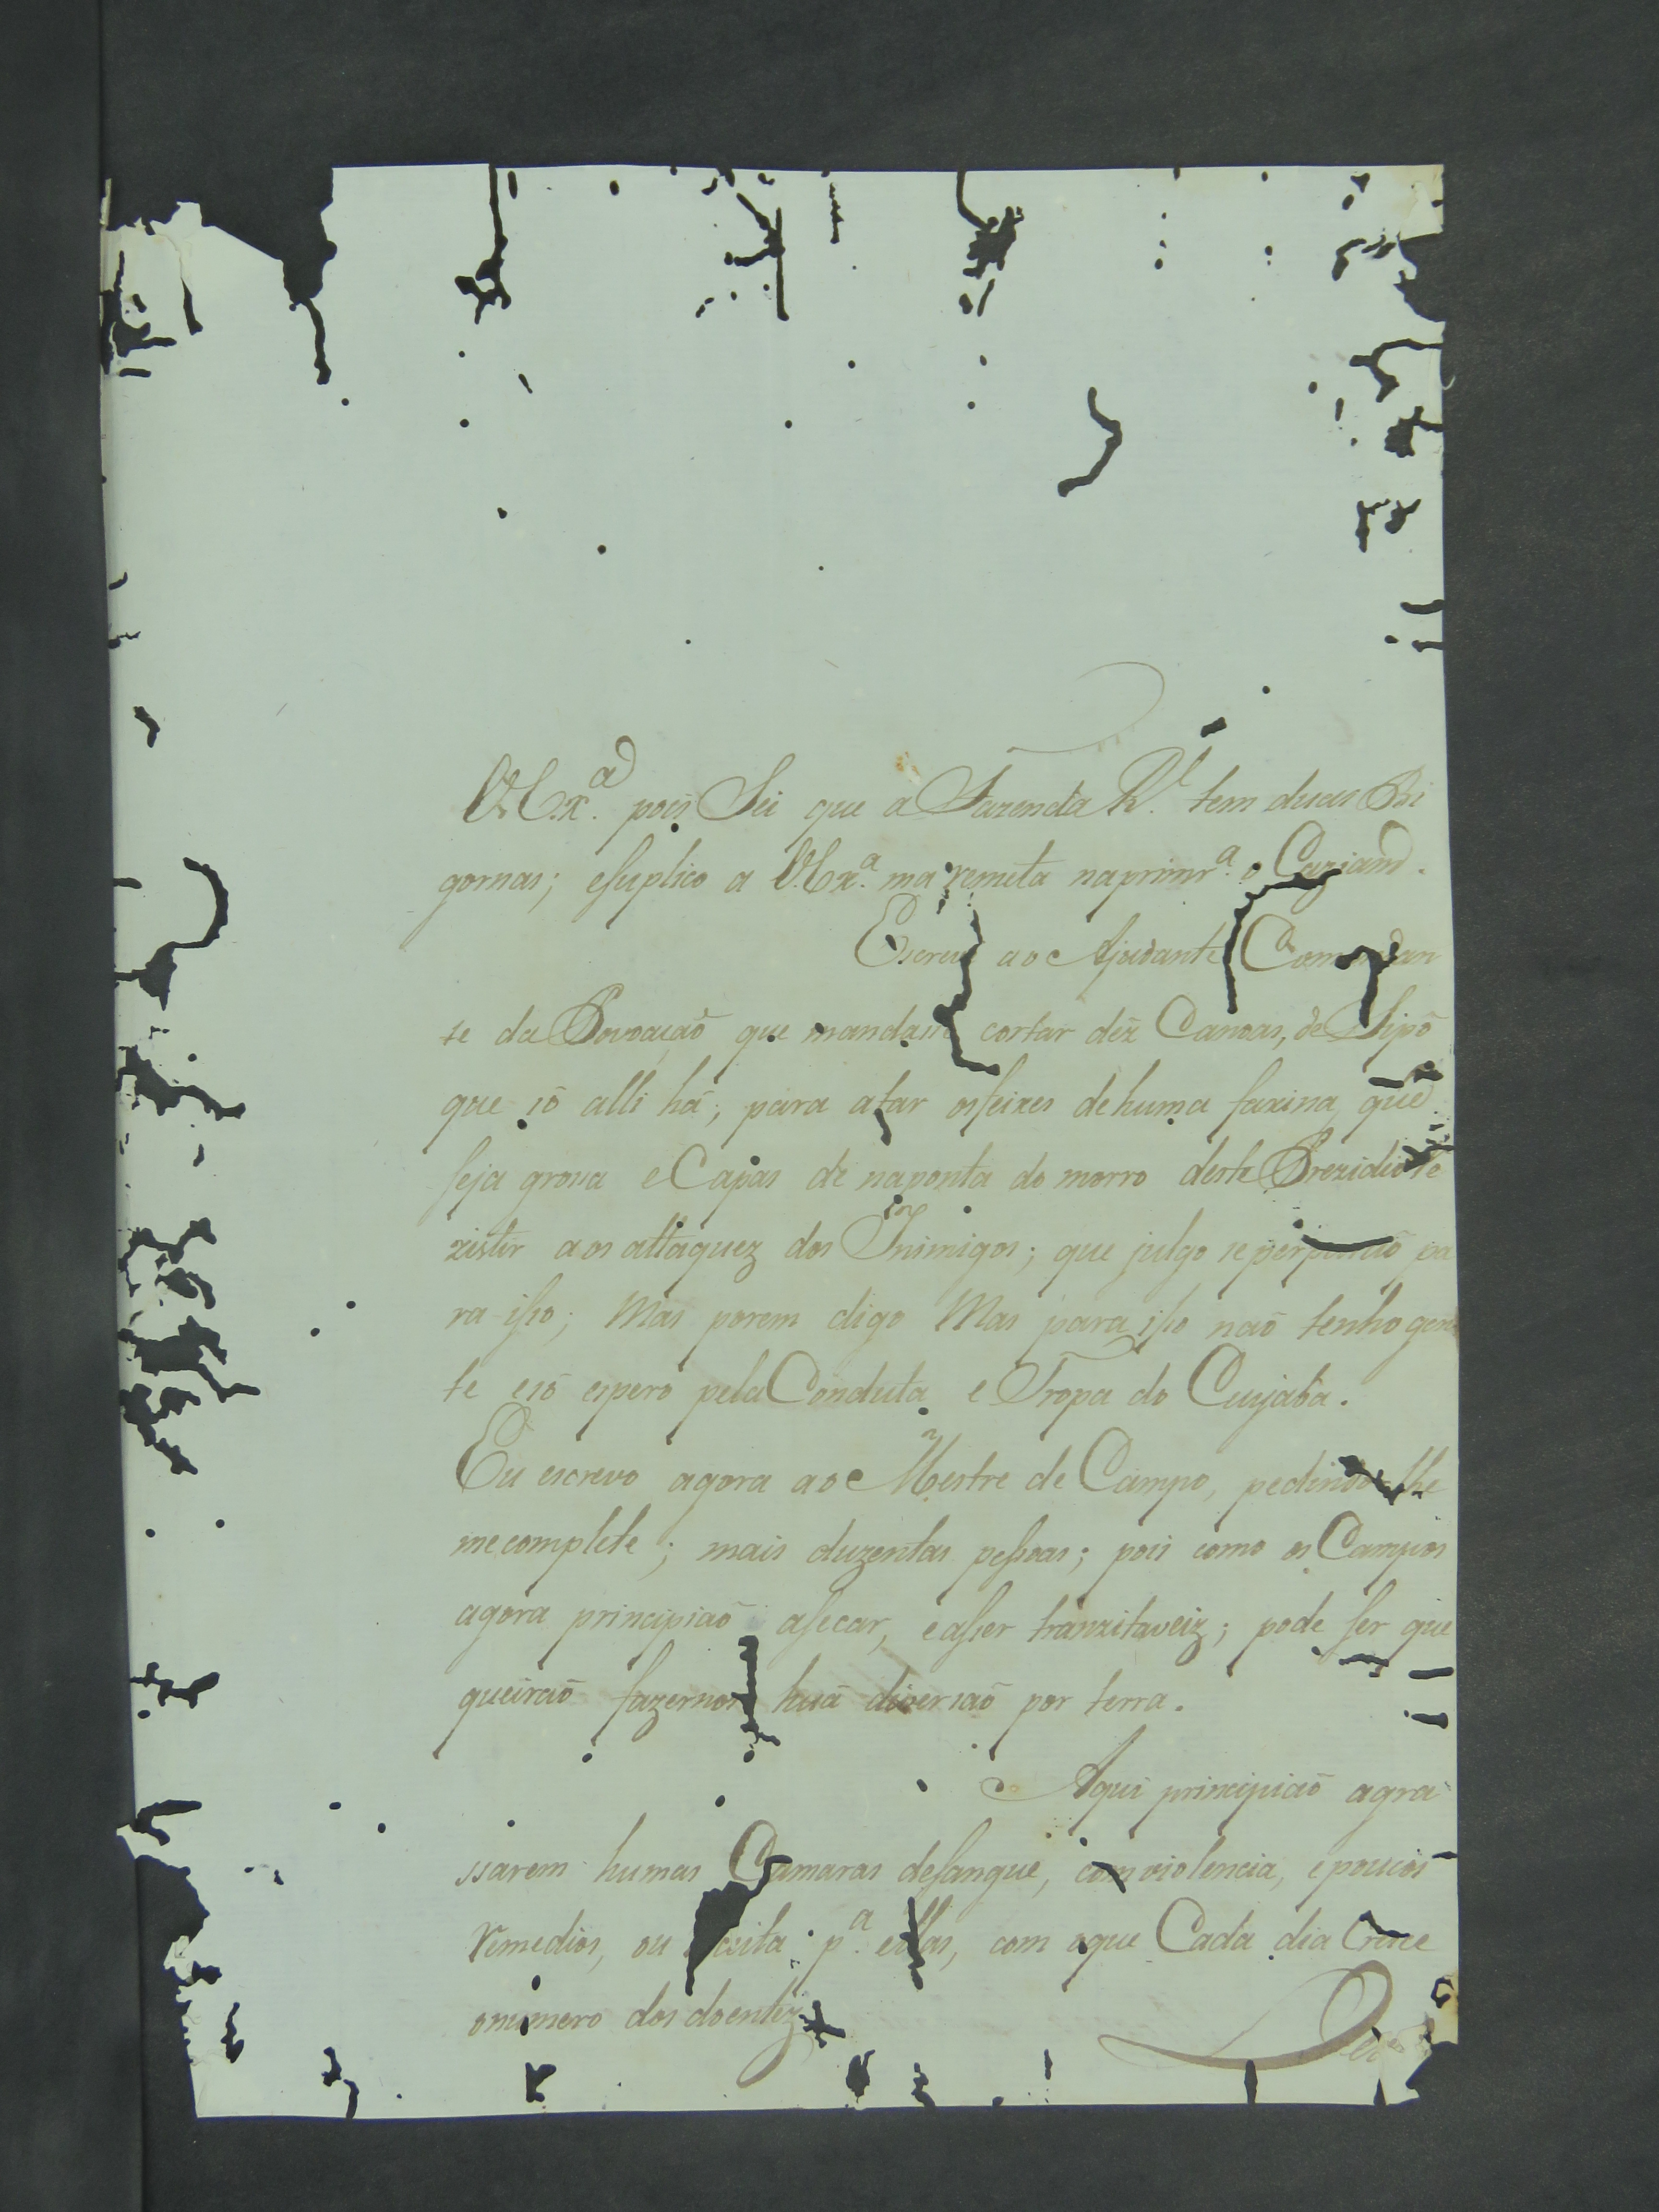 VEx.ª pois Sei que a Fazenda R.l tem duas Bi
gornas; esuplico a VEx.ª ma remeta naprimr.ª o
Escrevi ao Ajudante Comandan
te da Povoação que mandasse cortar déz Canoas, de Sipó
que só alli há, para atar osfeixes dehuma faxina, que
seja grossa eCapas de naponta do morro deste Prezidio re
zistir aos attaquez dos Inimigos; que julgo se pa
ra isso; Mas porem digo Mas para isso naõ tenho gen
te esó espero pelaConduta e Tropa do Cuyaba.
Eu escrevo agora ao Mestre de Campo, pedindo-lhe
mecomplete; mais duzentas pessoas; pois como os Campos
agora principiaõ asecar, easser tranzitaveiz; pode ser que
queiraõ fazernos huã diversaõ por terra.
Aqui principiaõ agra
ssarem humas Camaras desangue, comviolencia, epoucos
remedios, ou p.ª ellas, com oque Cada dia Crece
onumero dos doentez